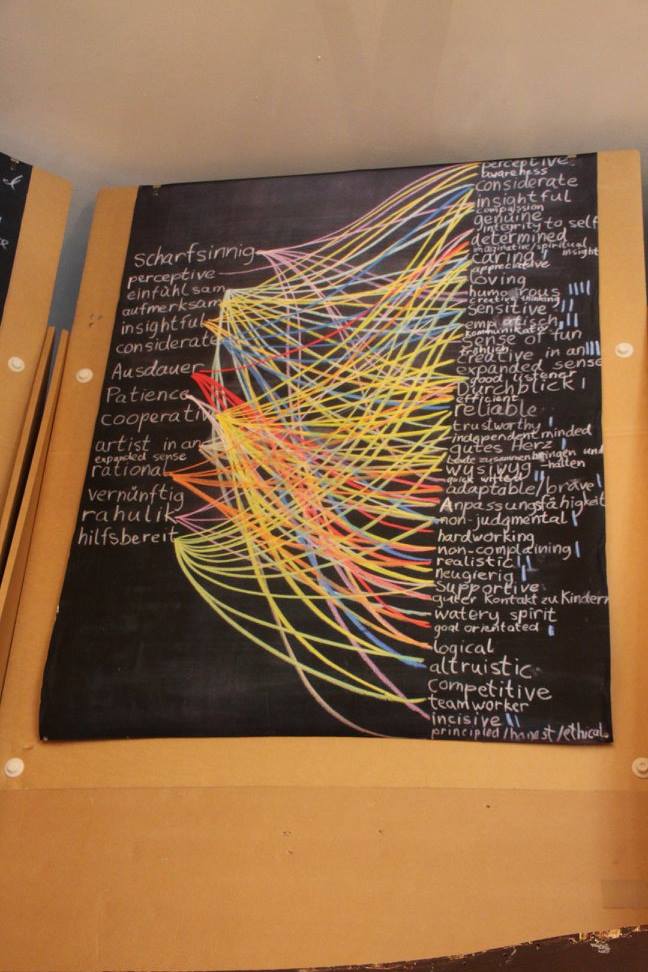 scharfsinnig
perceptive
einfühlsam
aufmerksam
insightful
considerate
Ausdauer
Patience
cooperativ
artist in an
expanded sense
rational
vernünftig
rahulik
hilfsbereit
perceptive
awareness
considerate
insightful
compassion
genuine
integrity to self
determined
imaginative/spiritual
caring insight
appreciative
loving
humorous
creative thinking
sensitive
empatisch
Sense of fun
fröhlich
creative in an
expanded sense
good listener
Durchblick
efficient
reliable
trustworthy
independent minded
gutes Herz
Leute zusammenbringen und
wysiwyg -halten
quick witted
adaptable/brave
Anpassungsfähigkeit
non-judgmental
hardworking
non-complaining
realistic
neugierig
Supportive
guter Kontakt zu Kindern
watery spirit
goal orientated
logical
altruistic
competitive
teamworker
incisive
principled/honest/ethical